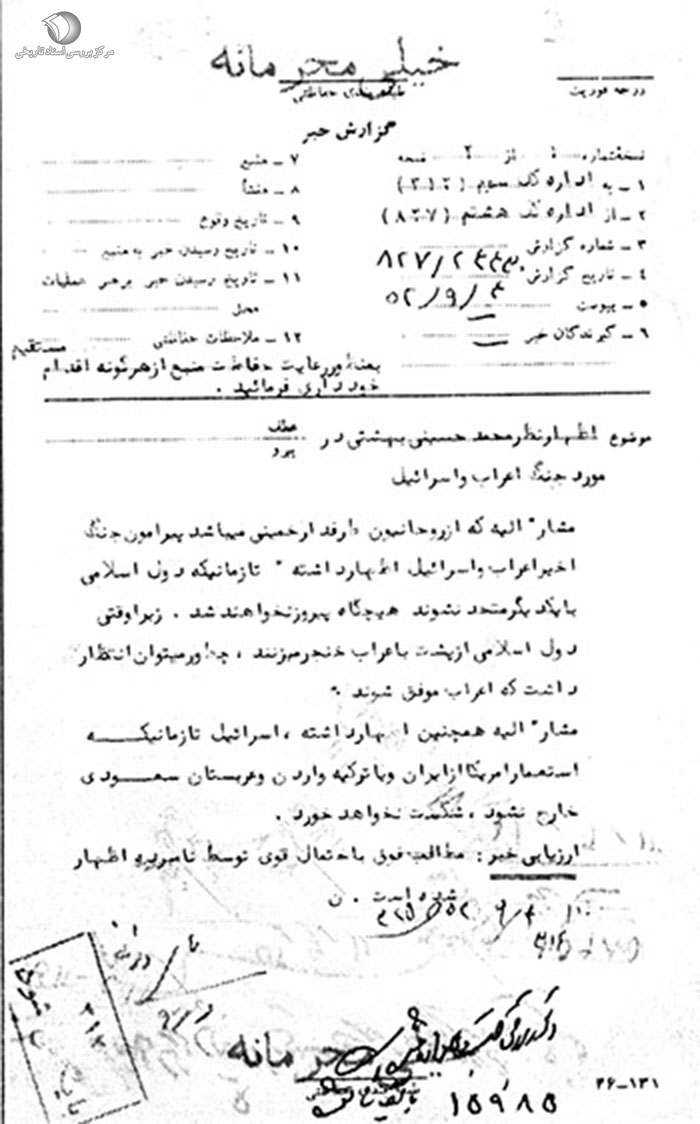 مرکز بررسی اسناد تاریخی
خیلی محرمانه
طبقه‌بندی حفاظتی
درجه فوریت
گزارش خبر
نسخه شماره ۱ از ۲ نسخه
۱ ـ به اداره کل سوم (۳۱۲)
۲ ـ از اداره کل هشتم (۸۲۷)
۳ ـ شماره گزارش
۴ ـ تاریخ گزارش ۵۲/۹/۴
۵ ـ پیوست
۶ ـ گیرندگان خبر
۷ ـ منبع
۸ ـ منشأ
۹ ـ تاریخ وقوع
۱۰ ـ تاریخ رسیدن خبر به منبع
۱۱ ـ تاریخ رسیدن خبر برهبر عملیات
محل
۱۲ ـ ملاحظات حفاظتی مستقیم
بمنظور رعایت حفاظت منبع از هرگونه اقدام
خودداری فرمائید .
موضوع اظهارنظر محمد حسینی بهشتی در عطف
پیرو
مورد جنگ اعراب و اسرائیل
مشارالیه که از روحانیون طرفدار خمینی میباشد پیرامون جنگ
اخیر اعراب و اسرائیل اظهار داشته " تازمانیکه دول اسلامی
با یکدیگر متحد نشوند هیچگاه پیروز نخواهند شد . زیرا وقتی
دول اسلامی از پشت با عراب خنجر میزنند ، چطور میتوان انتظار
داشت که اعراب موفق شوند "
مشارالیه همچنین اظهار داشته ، اسرائیل تازمانیکه
استعمار امریکا از ایران و یا ترکیه و اردن و عربستان سعودی
خارج نشود ، شکست نخواهد خورد .
ارزیابی خبر : مطالب فوق باحتمال قوی توسط نامبرده اظهار
شده است . ن
۳۱۲
محرمانه
۱۵۹۸۵
۲۶-۱۳۱